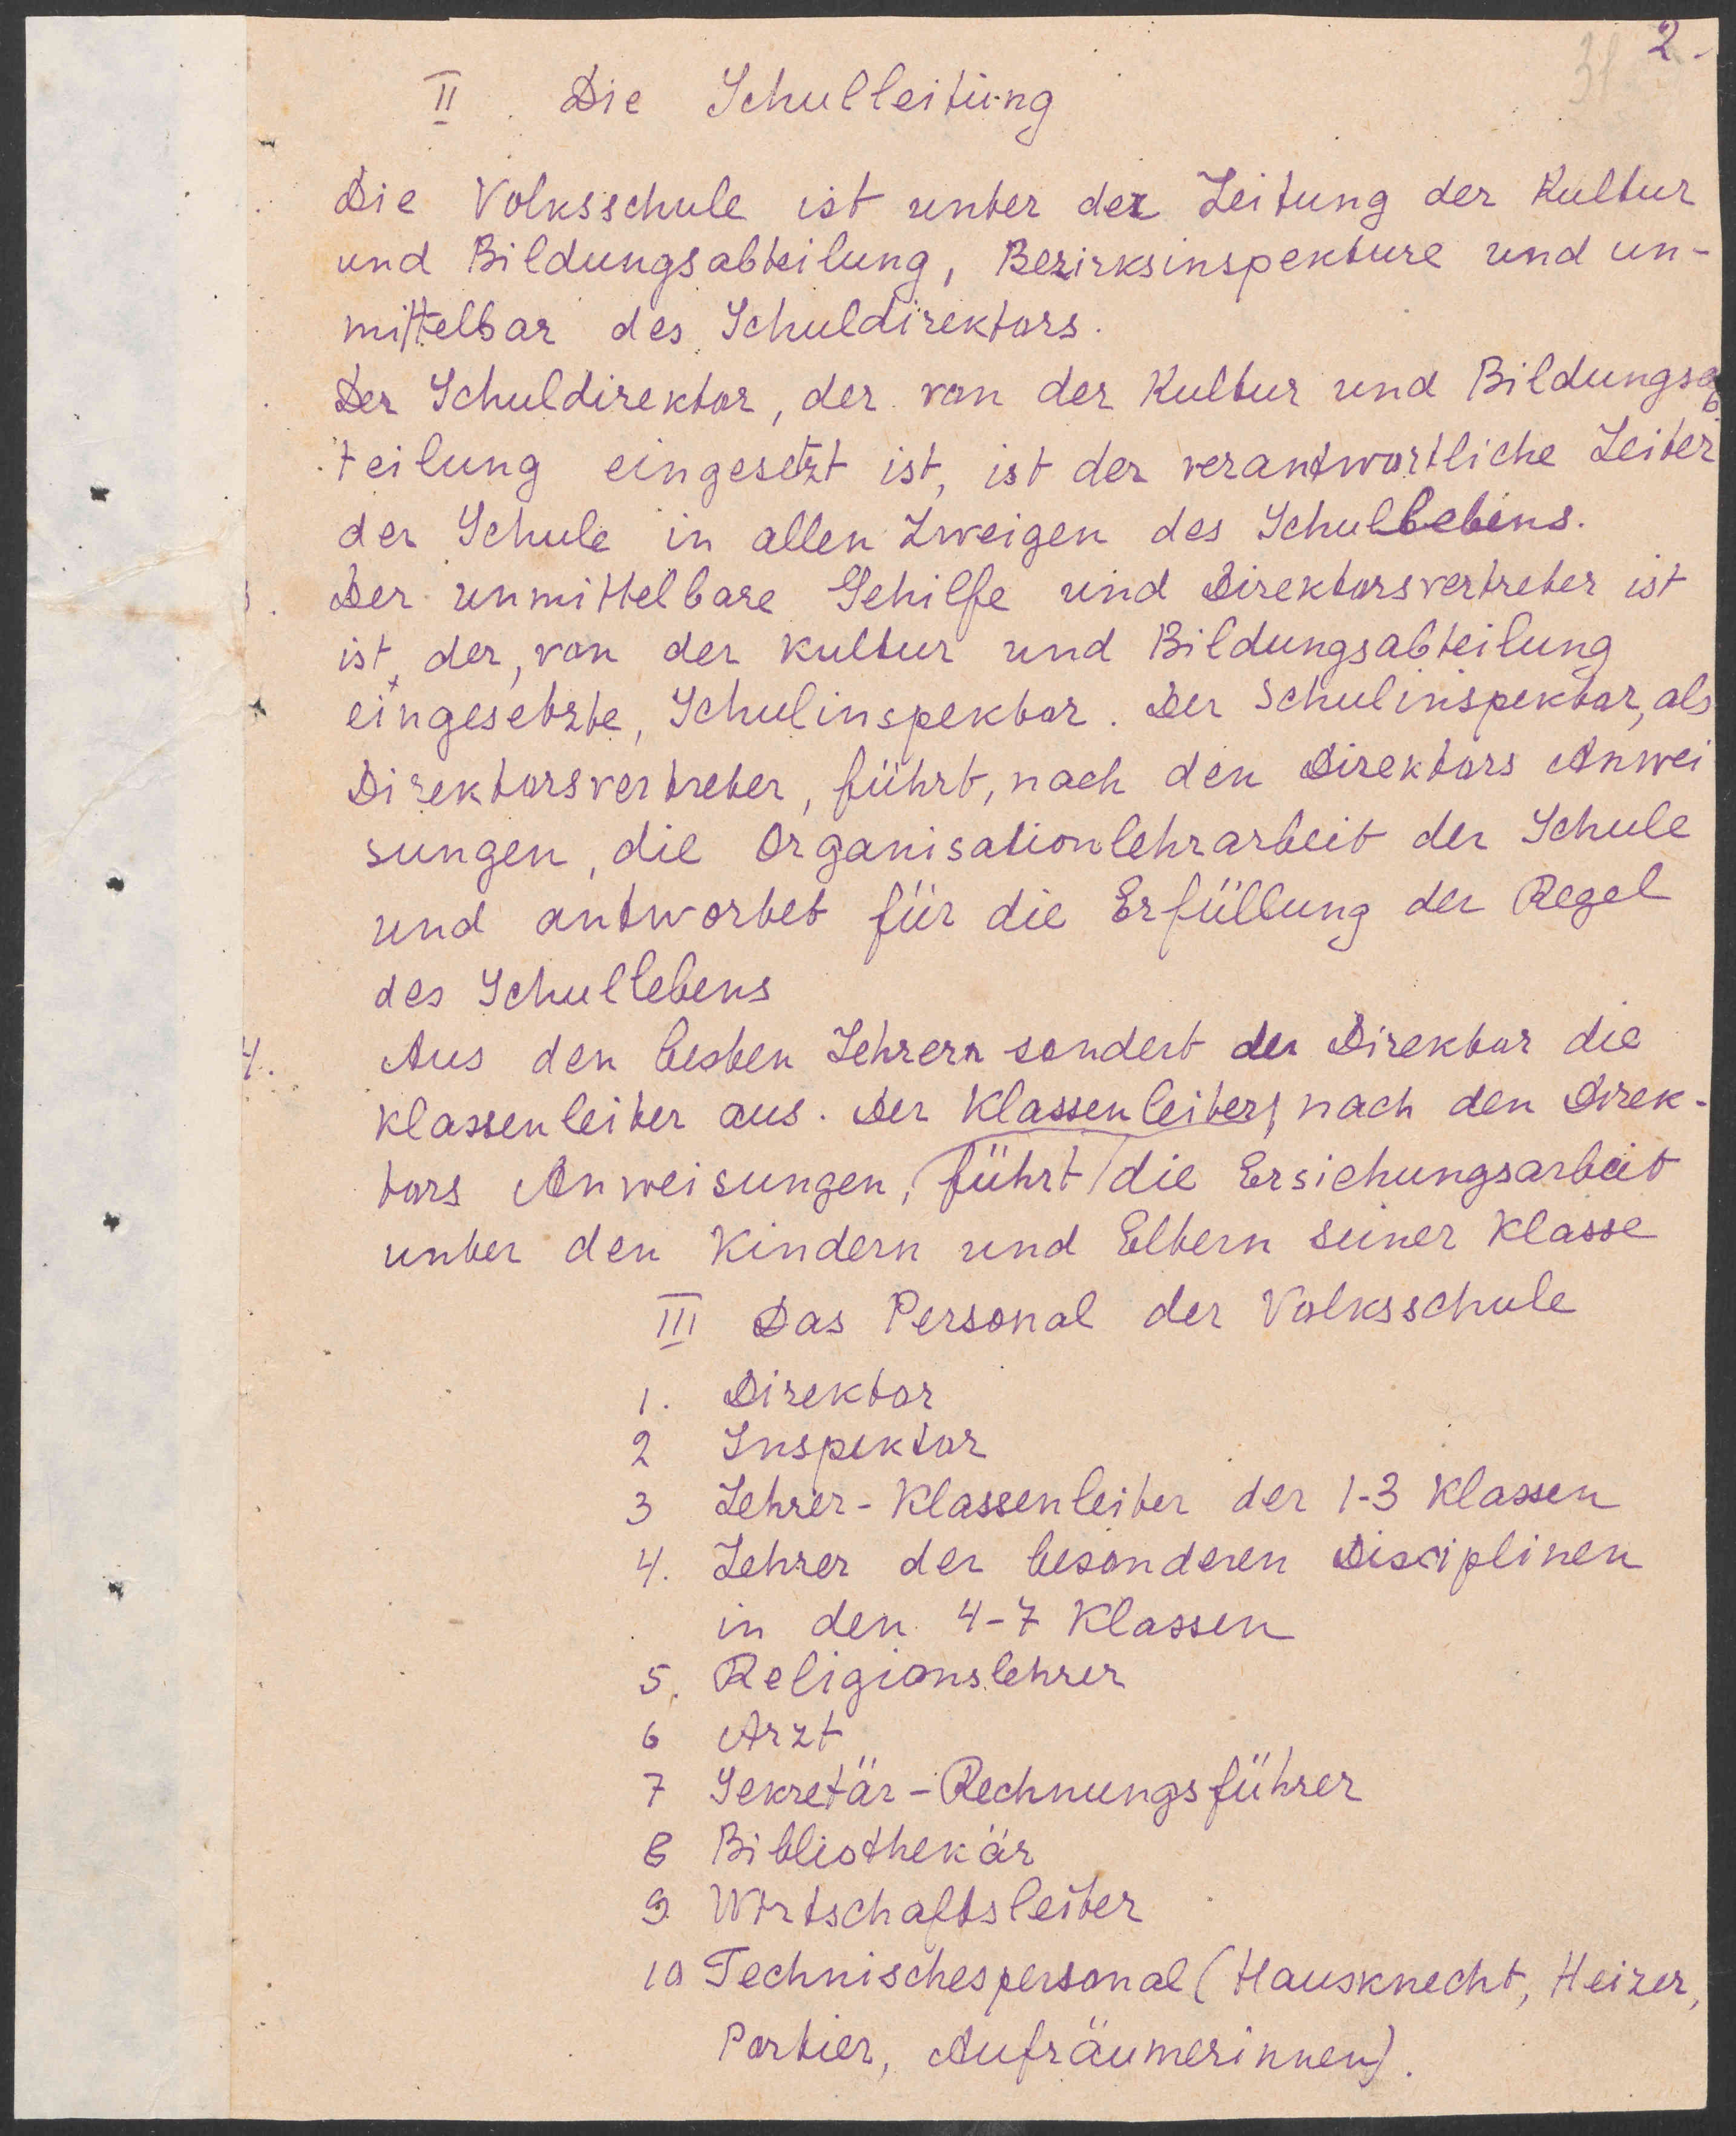 2.
31
II. Die Schulleitung
Die Volksschule ist unter der Leitung der Kultur
und Bildungsabteilung, Bezirksinspekture und un-
mittelbar des Schuldirektors.
Der Schuldirektor, der von der Kultur und Bildungsab
teilung eingesetzt ist, ist der verantwortliche Leiter
der Schule in allen Zweigen des Schullebens.
3. Der unmittelbare Gehilfe und Direktorsvertreter ist
ist, der, von der Kultur und Bildungsabteilung
eingesetzte, Schulinspektor. Der Schulinspektor, als
Direktorsvertreter, führt, nach den Direktors Anwei
sungen, die Organisationlehrarbeit der Schule
und antwortet für die Erfüllung der Regel
des Schullebens
4. Aus den besten Lehrern sondert der Direktor die
Klassenleiter aus. Der Klassenleiter, nach den Direk-
tors Anweisungen, führt die Ersichungsarbeit
unter den Kindern und Eltern seiner Klasse
III Das Personal der Volksschule
1. Direktor
2 Inspektor
3 Lehrer-Klassenleiter der 1-3 Klassen
4. Lehrer der besonderen Disciplinen
in den 4-7 Klassen
5. Religionslehrer
6 Arzt
7 Sekretär-Rechnungsführer
8 Bibliothekär
9. Wirtschaftsleiter
10 Technischespersonal (Hausknecht, Heizer,
Portier, Aufräumerinnen).